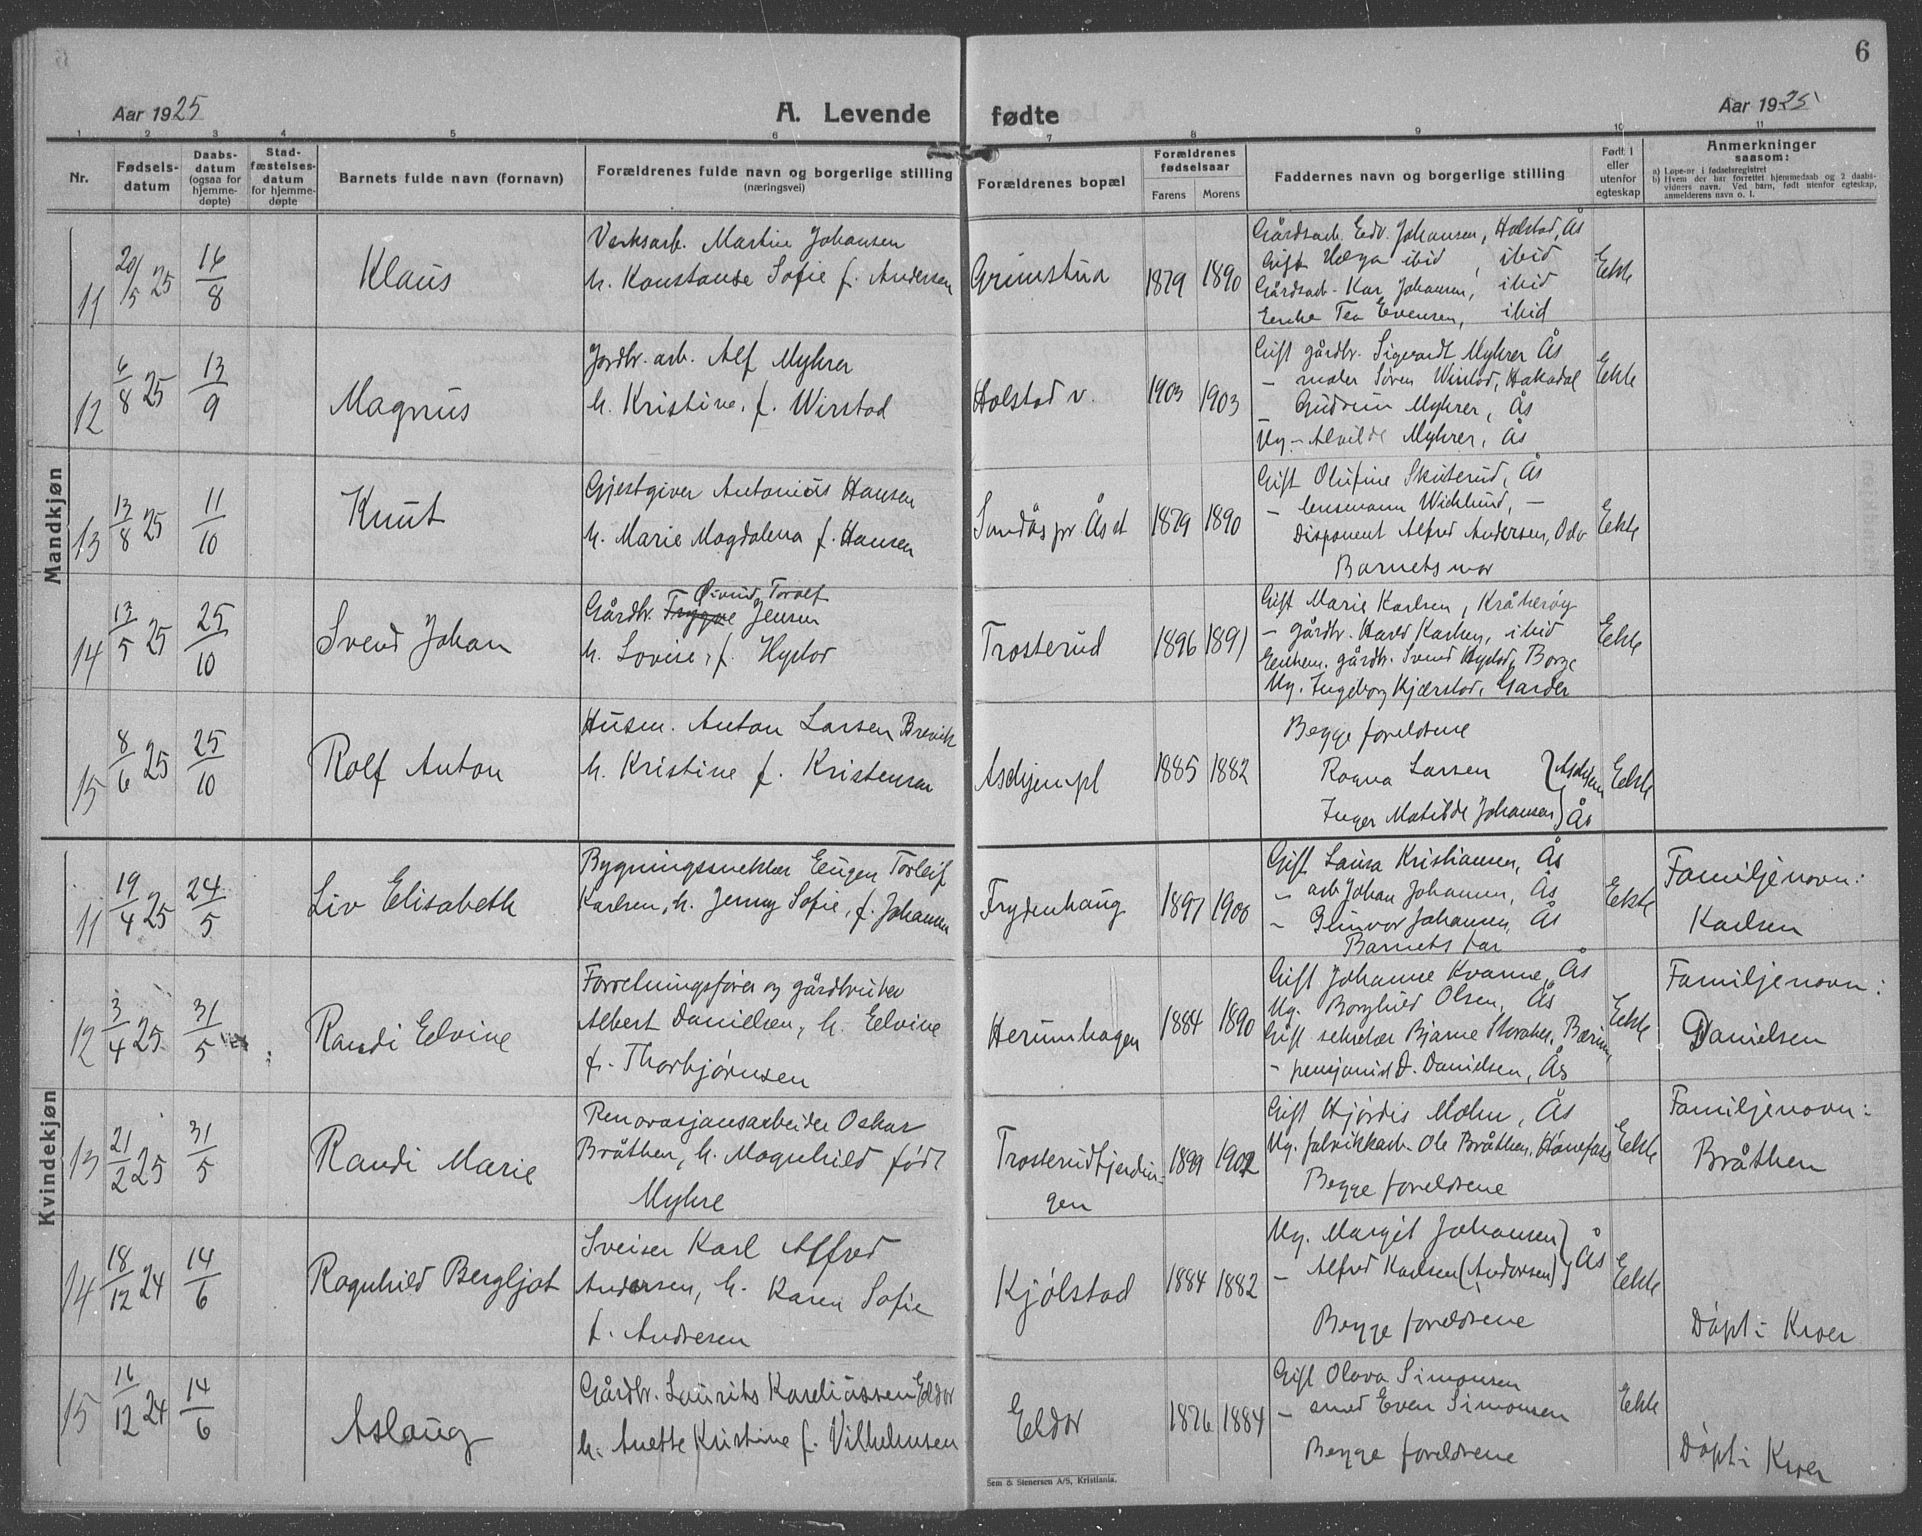 6
Aar 1925
A. Levende fødte
Aar 1925
1 2 3 4 5 6 7 8 9 10 11
Nr.
Fødsels-
datum
Daabs-
datum
(ogsaa for
hjemme-
døpte)
Stad-
fæstelses-
datum
for hjemme-
døpte
Barnets fulde navn (fornavn)
Forældrenes fulde navn og borgerlige stilling
(næringsvei)
Forældrenes bopæl
Forældrenes
fødselsaar
Farens Morens
Faddernes navn og borgerlige stilling
Født i
eller
utenfor
egteskap
Anmerkninger
saasom:
a) Løpe-nr i fødselsregistret
b) Hvem der har forrettet hjemmedaab og 2 daabs-
vidners navn. Ved barn, født utenfor egteskap,
anmelderens navn o. l.
Mandkjøn
11 20/5 25 16/8 Klaus
Verksarb. Martin Johansen
h. Konstanse Sofie f. Andersen
Grimstua 1879 1890
Gårdsarb. Edv. Johansen, Holstad, Ås
Gift Helga ibid, ibid
Gårdsarb. Kar Johansen, ibid
Enke Tea Evensen, ibid
Ekte
12 6/8 25 13/9 Magnus
Jordbr. arb. Alf Myhrer
h. Kristine, f. Wirstad
Holstad v. 1903 1903
Gift gårdbr. Sigvardt Myhrer Ås
– maler Søren Wirstad, Hakadal
– Gudrun Myhrer, Ås
Ug – Alvilde Myhrer, Ås
Ekte
13 13/8 25 11/10 Knut
Gjestgiver Antonius Hansen
h. Marie Magdalena f. Hansen
Sundås pr Ås st 1879 1890
Gift Olufine Skuterud, Ås
– lensmann Wicklund, –
Disponent Alfred Andersen,
Barnets mor
Ekte
14 13/5 25 25/10 Svend Johan
Øivind Toralf
Gårdbr. Trygve Jensen
h. Lovise, f. Hystad
Trosterud 1896 1891
Gift Marie Karlsen, Kråkerøy
– gårdbr. Harald Karlsen, ibid
Enkem. gårdbr. Svend Hystad, Borge
Ug. Ingeborg Kjærstad, Garder
Ekte
15 8/6 25 25/10 Rolf Anton
Husm. Anton Larsen Brevik
h. Kristine f. Kristensen
Askjempl 1885 1882
Begge foreldrene
Ragna Larsen
Inger Matilde Johansen } Ås
Ekte
Kvindekjøn
11 19/4 25 24/5 Liv Elisabeth
Bygningssnekker Eugen Torleif
Karlsen, h. Jenny Sofie, f. Johansen
Frydenhaug 1897 1900
Gift Laura Kristiansen, Ås
– arb Johan Johansen, Ås
– Gunvor Johansen, Ås
Barnets far
Ekte
Familjenavn:
Karlsen
12 3/4 25 31/5 Randi Edvine
Forretningsfører og gårdbruker
Albert Danielsen, h. Edvine
f. Thorbjørnsen
Herumhagen 1884 1890
Gift Johanne Kvarme, Ås
Ug. Borghild Olsen, Ås
Gift sekretær Bjarne Storaker, Bærum
– pensjonist D. Danielsen, Ås
Ekte
Familjenavn:
Danielsen
13 21/2 25 31/5 Randi Marie
Renovasjonsarbeider Oskar
Bråthen, h. Magnhild født
Myhre
Trosterudfjerdin-
gen
1899 1902
Gift Hjørdis Mohn, Ås
Ug. fabrikkarb. Ole Bråthen, Hønefoss
Begge foreldrene
Ekte
Familjenavn:
Bråthen
14 18/12 24 14/6 Ragnhild Bergljot
Sveiser Karl Alfred
Andersen, h. Karen Sofie
f. Andresen
Kjølstad 1884 1882
Ug. Margit Johansen
– Alfred Karlsen (Andersen) } Ås
Begge foreldrene
Ekte
Døpt i Kroer
15 16/12 24 14/6 Aslaug
Gårdbr. Laurits Kareliussen Eldor
h. Anette Kristine f. Vilhelmsen
Eldor 1876 1884
Gift Olava Simonsen
– smed Even Simonsen
Begge foreldrene
Ekte
Døpt i Kroer
Sem & Stenersen A/S, Kristiania.